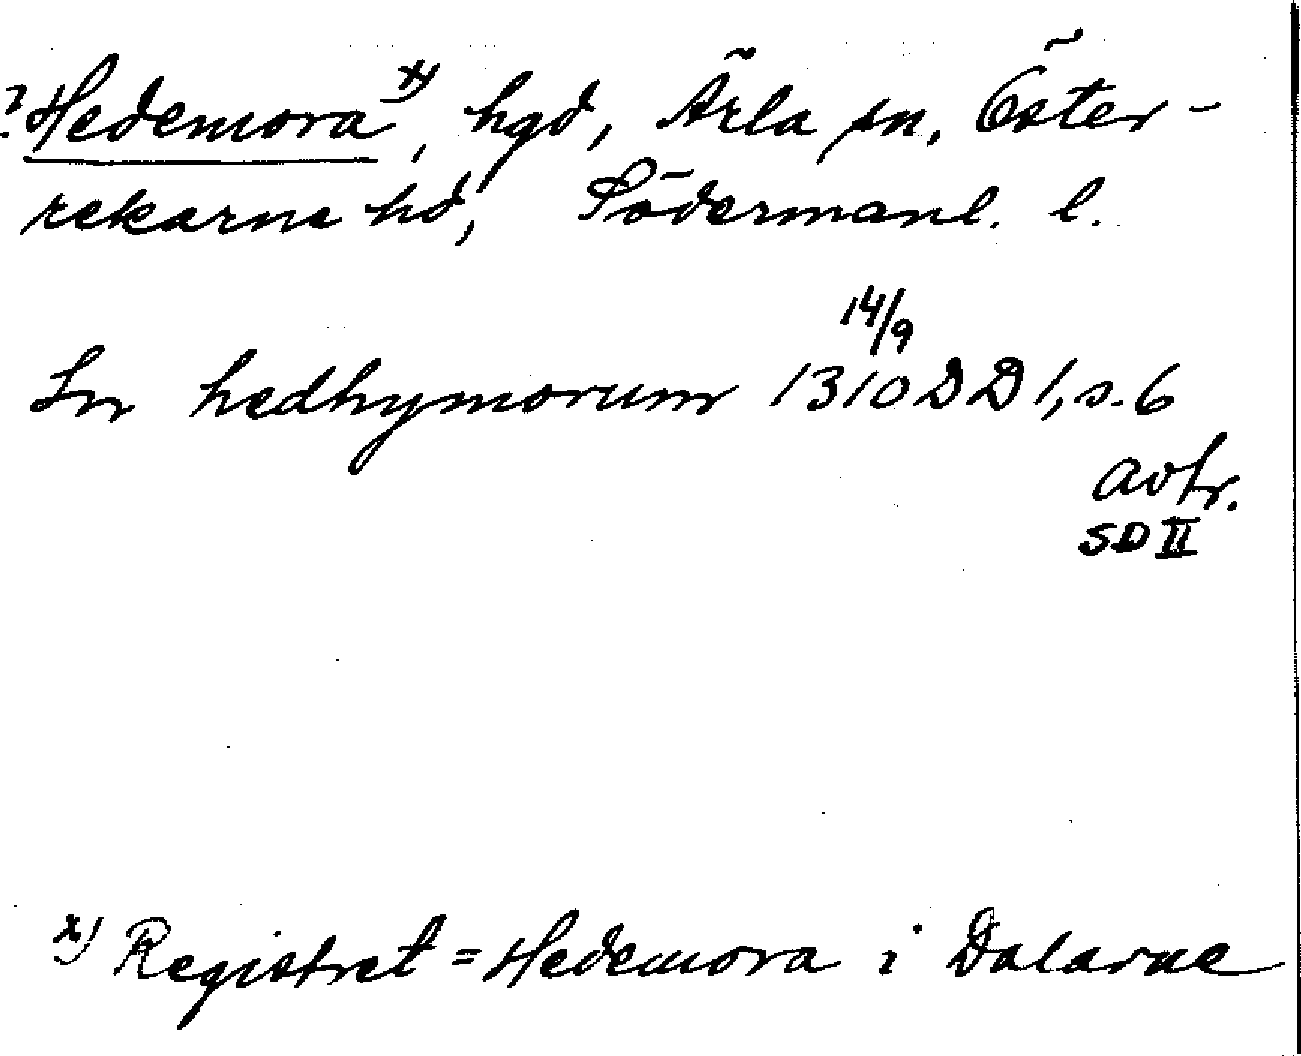 ? Hedemora x), hgd, Ärla sn, Öster-
rekarne hd, Södermanl. l.
14/9
In hedhymorum 1310 DD 1, s. 6
avtr.
SD II
x) Registret = Hedemora i Dalarne